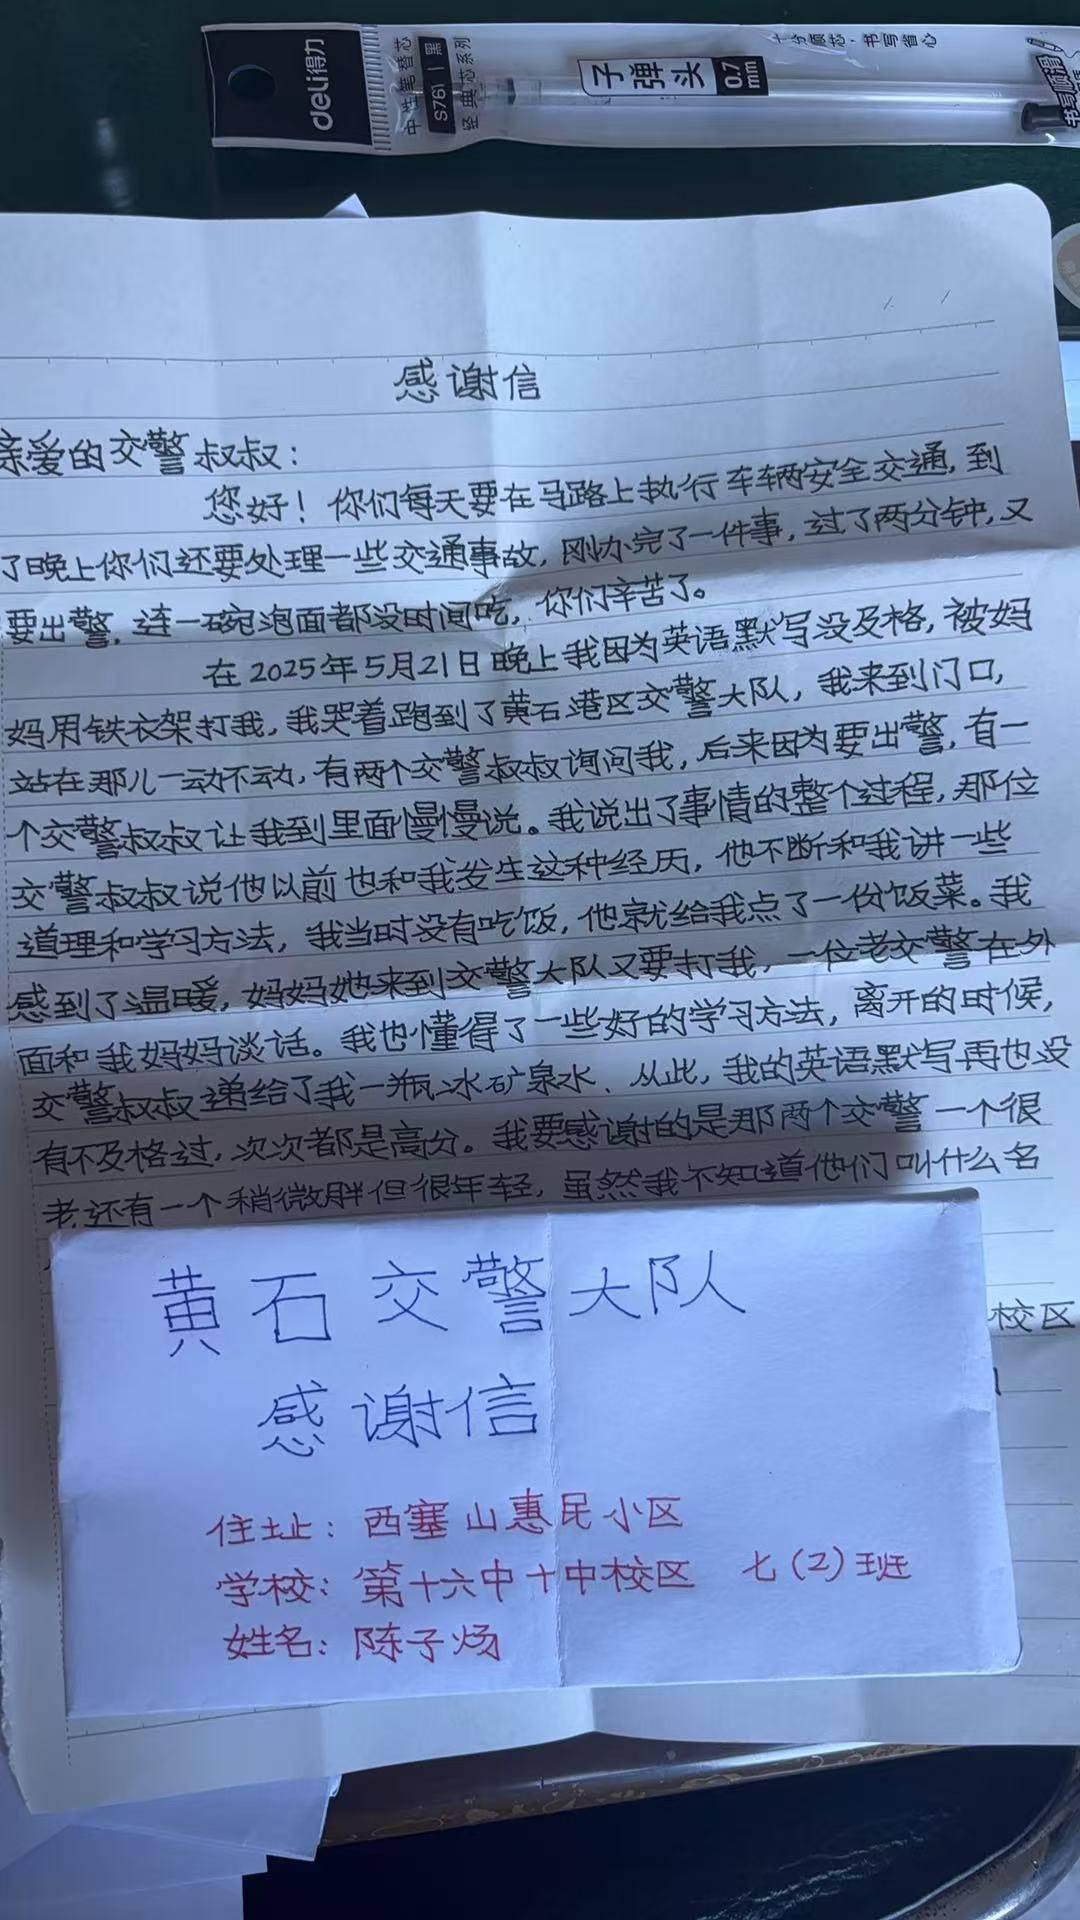 deli得力
中性笔替芯
S761 黑
经典芯系列
子弹头 0.7mm
书写省心
感谢信
亲爱的交警叔叔：
您好！你们每天要在马路上执行车辆安全交通，到
了晚上你们还要处理一些交通事故，刚办完了一件事，过了两分钟，又
要出警，连一碗泡面都没时间吃，你们辛苦了。
在2025年5月21日晚上我因为英语默写没及格，被妈
妈用铁衣架打我，我哭着跑到了黄石港区交警大队，我来到门口，
站在那儿一动不动，有两个交警叔叔询问我，后来因为要出警，有一
个交警叔叔让我到里面慢慢说。我说出了事情的整个过程，那位
交警叔叔说他以前也和我发生这种经历，他不断和我讲一些
道理和学习方法，我当时没有吃饭，他就给我点了一份饭菜。我
感到了温暖，妈妈她来到交警大队又要打我，一位老交警在外
面和我妈妈谈话。我也懂得了一些好的学习方法，离开的时候，
交警叔叔递给了我一瓶冰矿泉水、从此，我的英语默写再也没
有不及格过，次次都是高分。我要感谢的是那两个交警一个很
老还有一个稍微胖但很年轻，虽然我不知道他们叫什么名
校区
黄石交警大队
感谢信
住址：西塞山惠民小区
学校：第十六中十中校区 七（2）班
姓名：陈子炀